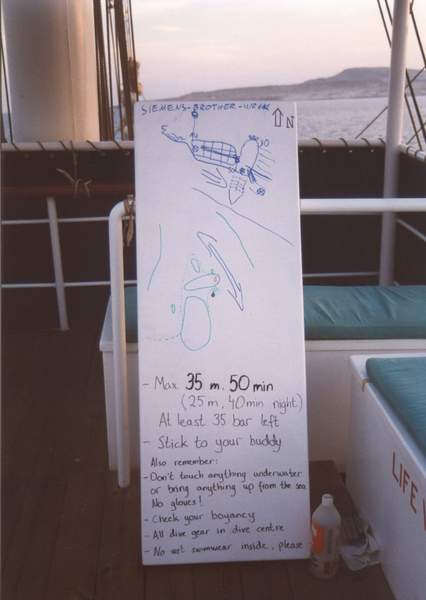 SIEMENS-BROTHER-WRECK
N
- Max. 35 m, 50 min
(25 m, 40 min night)
At least 35 bar left
- Stick to your buddy
Also remember:
- Don't touch anything underwater
or bring anything up from the sea.
No gloves!
- Check your boyancy
- All dive gear in dive centre
- No wet swimwear inside, please
LIFE